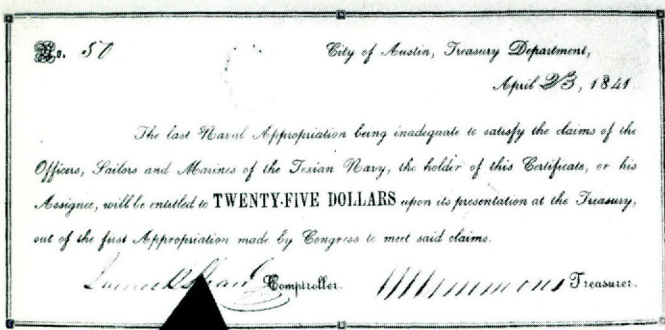 No. 50 City of Austin, Treasury Department,
April 23, 1841.
The last Naval Appropriation being inadequate to satisfy the claims of the
Officers, Sailors and Marines of the Texian Navy, the holder of this Certificate, or his
Assignee, will be entitled to TWENTY-FIVE DOLLARS upon its presentation at the Treasury,
out of the first Appropriation made by Congress to meet said claims.
Comptroller. Treasurer.